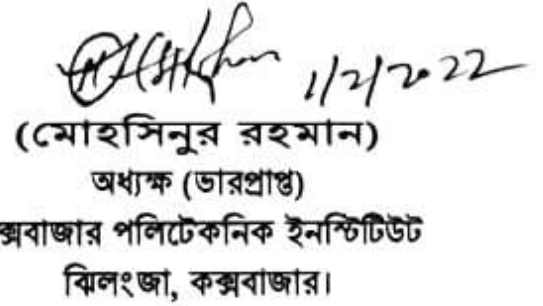 1/2/2022
(মোহসিনুর রহমান)
অধ্যক্ষ (ভারপ্রাপ্ত)
ক্সবাজার পলিটেকনিক ইনস্টিটিউট
ঝিলংজা, কক্সবাজার।